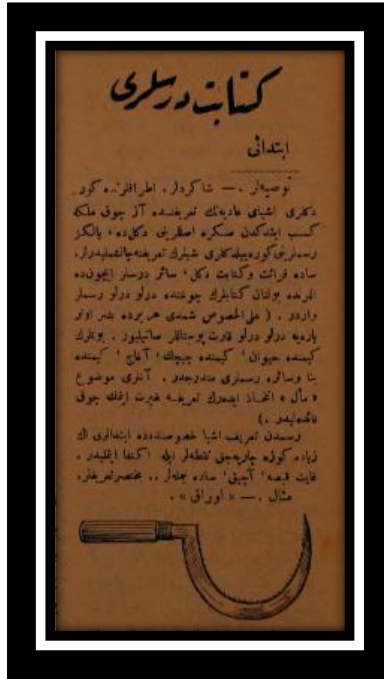 كتابت درسلری
ابتدائی
توصیه‌لر . — شاكردلر، اطرافلرنده كور
دكلری اشیای عادیه‌نك تعریفنده آز چوق ملكه
كسب ایتدكدن صكره اصللرینی دكل ده ، یالكز
رسملرینی كوره‌بیله‌كلری شیلرك تعریفنه چالیشملیدرلر.
ساده قرائت وكتابت دكل ، سائر درسلر ایچون ده
اللرنده بولنان كتابلرك چوغنده درلو درلو رسملر
واردر . ( علی الخصوص شمدی هر یرده بشر اونر
پاره‌یه درلو درلو قارت پوستاللر صاتیلیور . بونلرك
كیمنده حیوان ، كیمنده چیچك ، آغاج ، كیمنده
بنا وسائره رسملری مندرجدر . آنلری موضوع
« مآل » اتخاذ ایده‌رك تعریفه غیرت ایتمك چوق
فائده‌لیدر . )
رسمدن تعریف اشیا خصوصنده ده ابتدالری اك
زیاده كوزه چارپه‌جق نقطه‌لر ایله اكتفا ایتملیدر .
غایت قیصه ، آچیق ، ساده جمله‌لر .. مختصر تعریفلر.
مثال . — « اوراق » .